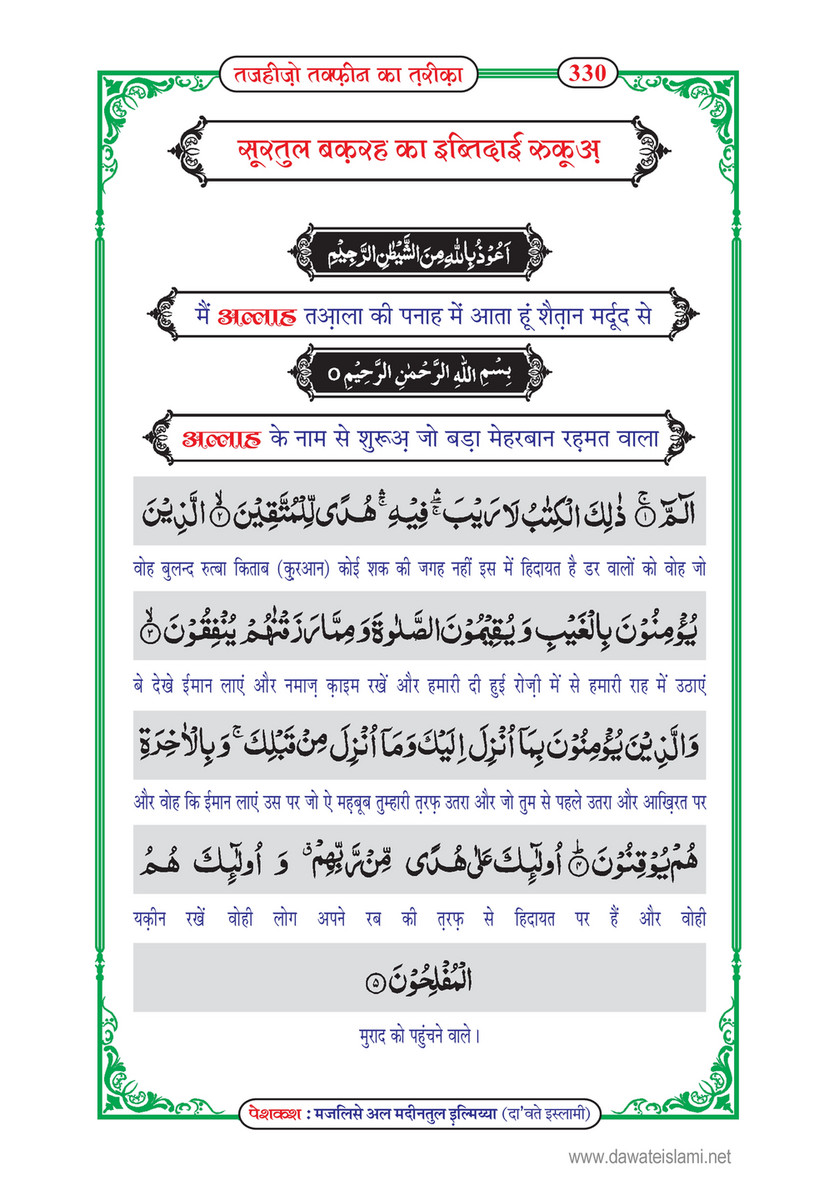 तजहीज़ो तक्फ़ीन का त़रीक़ा
330
सूरतुल बक़रह का इब्तिदाई रुकूअ़
اَعُوْذُ بِاللّٰهِ مِنَ الشَّيْطٰنِ الرَّجِيْمِ
मैं अल्लाह तआ़ला की पनाह में आता हूं शैत़ान मर्दूद से
بِسْمِ اللّٰهِ الرَّحْمٰنِ الرَّحِيْمِ ○
अल्लाह के नाम से शुरूअ़ जो बड़ा मेहरबान रह़मत वाला
الٓمّٓ ۚ﴿۱﴾ ذٰلِكَ الْكِتٰبُ لَا رَيْبَ ۛۚ فِيْهِ ۛۚ هُدًى لِّلْمُتَّقِيْنَ ۙ﴿۲﴾ الَّذِيْنَ
वोह बुलन्द रुत्बा किताब (क़ुरआन) कोई शक की जगह नहीं इस में हिदायत है डर वालों को वोह जो
يُؤْمِنُوْنَ بِالْغَيْبِ وَ يُقِيْمُوْنَ الصَّلٰوةَ وَ مِمَّا رَزَقْنٰهُمْ يُنْفِقُوْنَ ۙ﴿۳﴾
बे देखे ईमान लाएं और नमाज़ क़ाइम रखें और हमारी दी हुई रोज़ी में से हमारी राह में उठाएं
وَ الَّذِيْنَ يُؤْمِنُوْنَ بِمَاۤ اُنْزِلَ اِلَيْكَ وَ مَاۤ اُنْزِلَ مِنْ قَبْلِكَ ۚ وَ بِالْاٰخِرَةِ
और वोह कि ईमान लाएं उस पर जो ऐ मह़बूब तुम्हारी त़रफ़ उतरा और जो तुम से पहले उतरा और आख़िरत पर
هُمْ يُوْقِنُوْنَ ؕ﴿۴﴾ اُولٰٓئِكَ عَلٰى هُدًى مِّنْ رَّبِّهِمْ ۗ وَ اُولٰٓئِكَ هُمُ
यक़ीन रखें वोही लोग अपने रब की त़रफ़ से हिदायत पर हैं और वोही
الْمُفْلِحُوْنَ ﴿۵﴾
मुराद को पहुंचने वाले ।
पेशकश : मजलिसे अल मदीनतुल इ़ल्मिय्या (दा'वते इस्लामी)
www.dawateislami.net